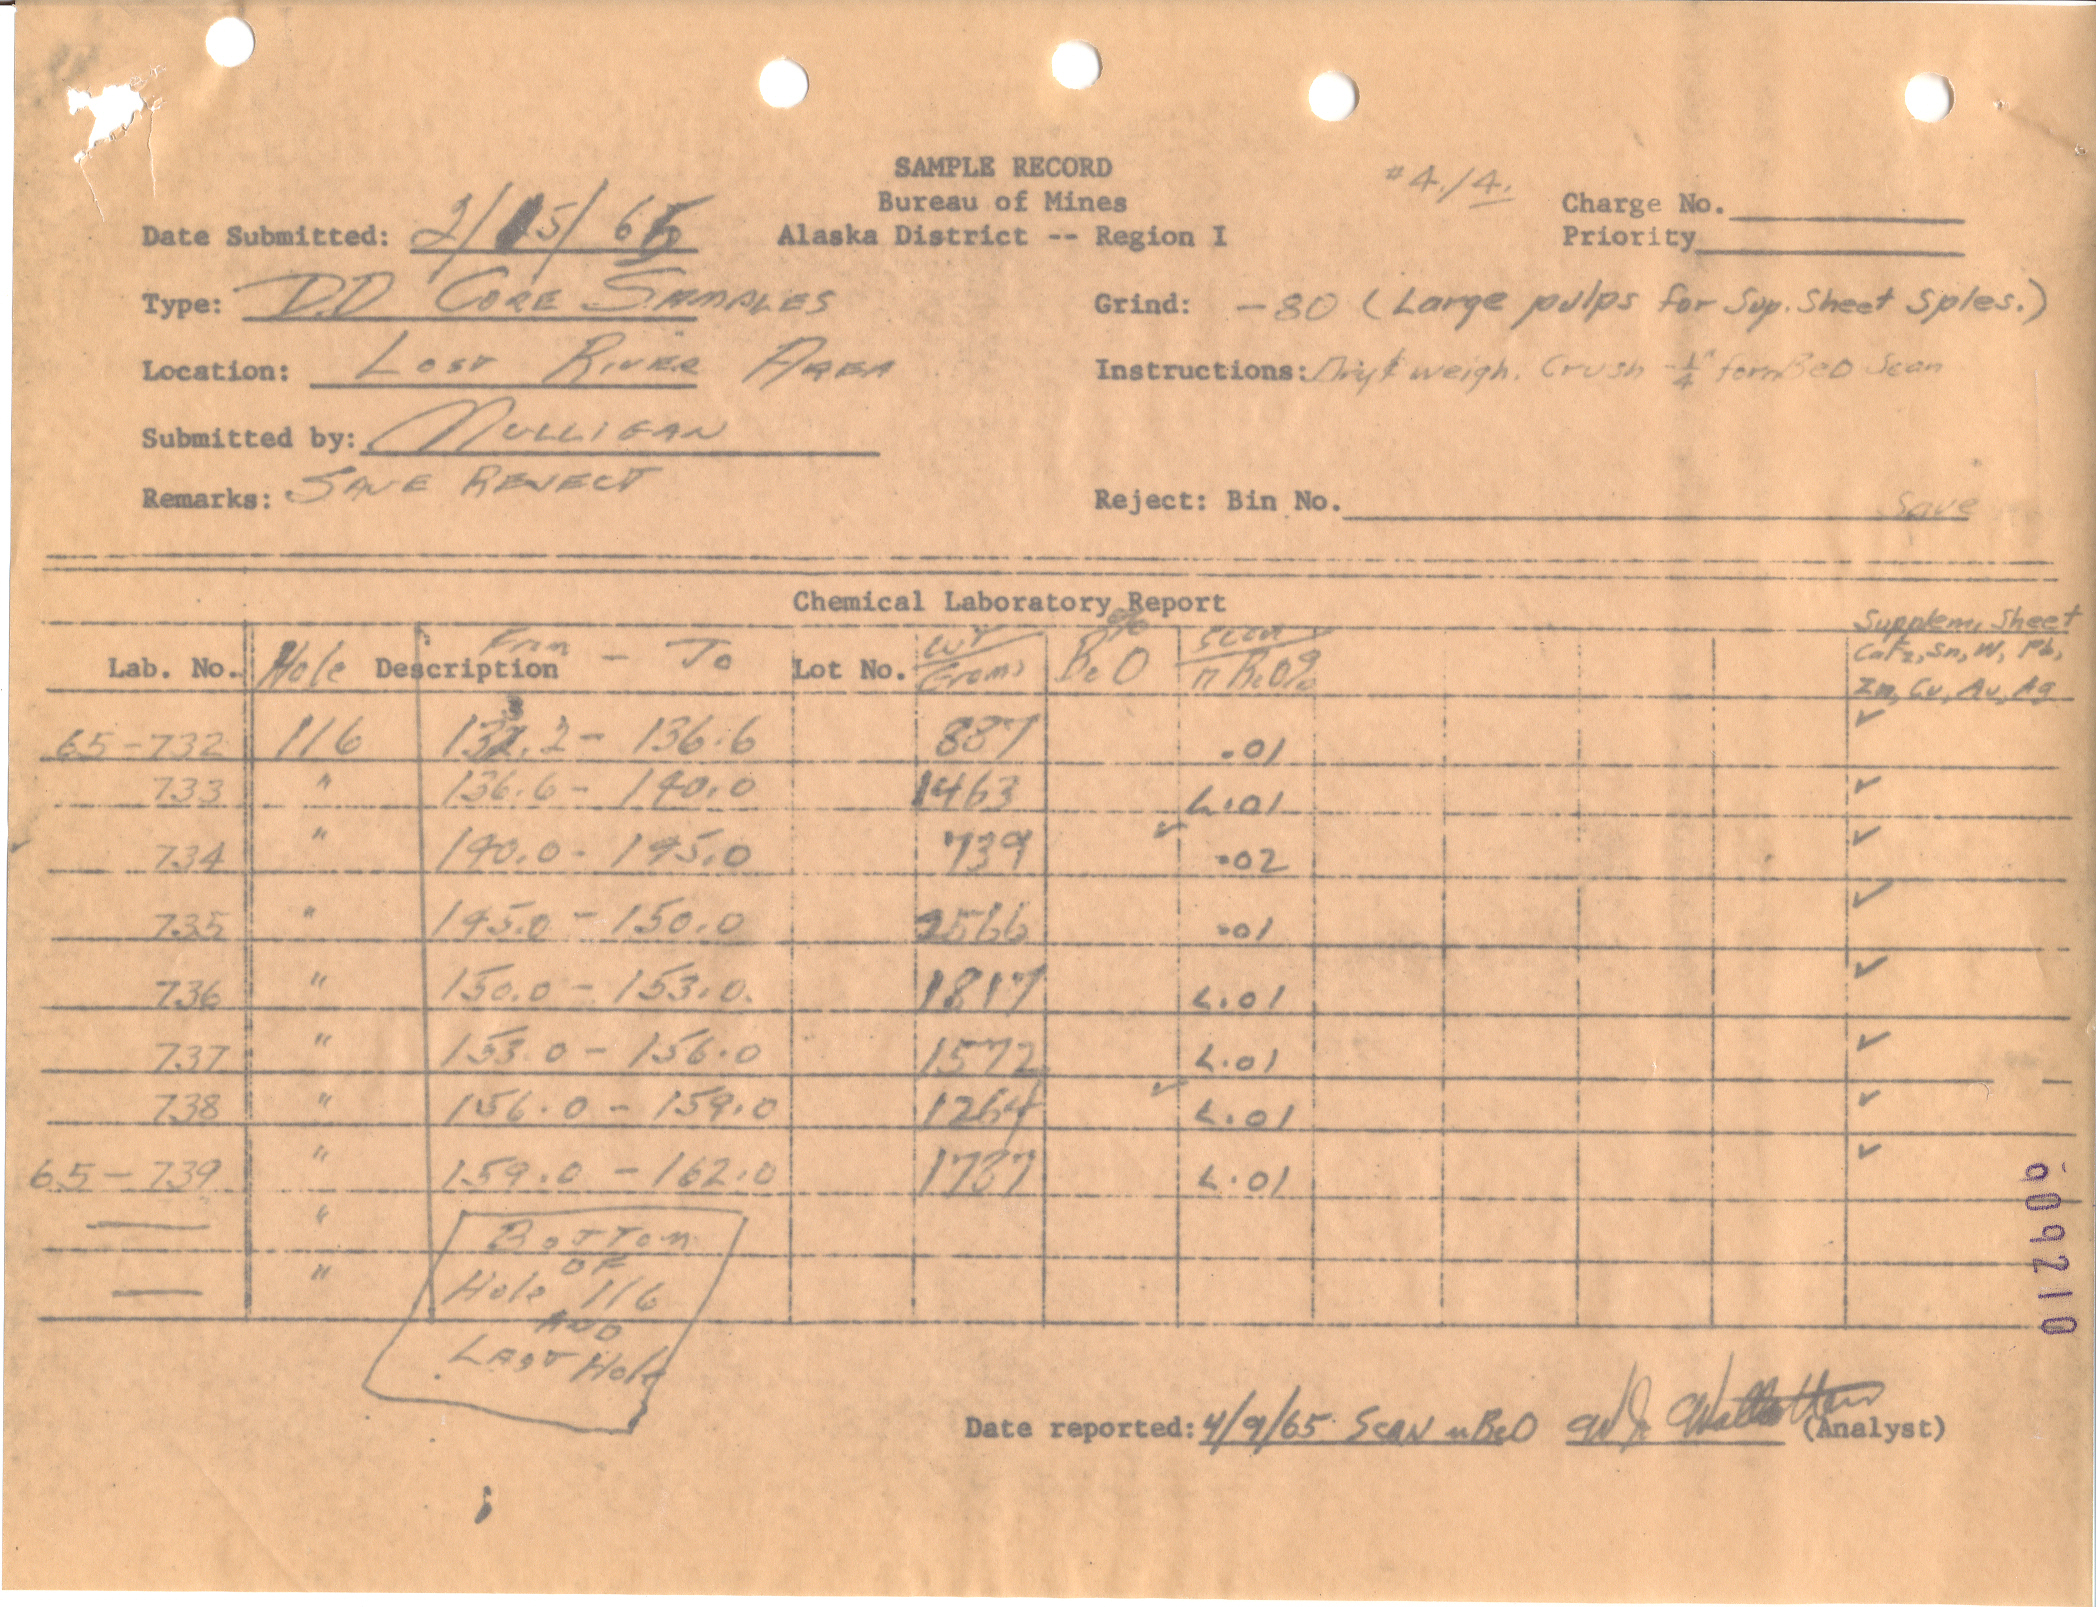 SAMPLE RECORD
#4./4.
Bureau of Mines
Charge No.
Date Submitted: 2/15/65
Alaska District -- Region I
Priority
Type: D.D CORE SAMPLES
Grind: -80 (Large pulps for Sup. Sheet Sples.)
Location: LOST RIVER AREA
Instructions: Dry & weigh. Crush -1/4" for nBeO Scan
Submitted by: MULLIGAN
Remarks: SAVE REJECT
Reject: Bin No. Save
Chemical Laboratory Report
Supplem. Sheet
CaF2, Sn, W, Pb,
Zn, Cu, Au, Ag
Lab. No. Hole Description From - To Lot No. WT Grams % BeO scan n BeO%
65-732 116 133.2 - 136.6 887 .01 ✓
733 " 136.6 - 140.0 1463 L.01 ✓
✓ 734 " 140.0 - 145.0 739 ✓ .02 ✓
735 " 145.0 - 150.0 2566 .01 ✓
736 " 150.0 - 153.0. 1817 L.01 ✓
737 " 153.0 - 156.0 1572 L.01 ✓
738 " 156.0 - 159.0 1264 ✓ L.01 ✓
65-739 " 159.0 - 162.0 1787 L.01 ✓
— " BOTTOM
OF
— " Hole 116
AND
LAST Hole
Date reported: 4/9/65 SCAN nBeO (Analyst)